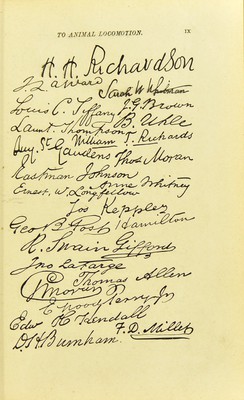 TO ANIMAL LOCOMOTION. ix
H. H. Richardson
J. Q. A. Ward
Sarah W. Whitman
Louis C. Tiffany J. G. Brown
Launt. Thompson B. Uhle
William T. Richards
Aug. St. Gaudens Thos Moran
Eastman Johnson
Anne Whitney
Ernest. W. Longfellow
Jos Keppler
Geo. B. Post Hamilton
R. Swain Gifford
Jno LaFarge
Thomas Allen
P Moran
E Wood Perry Jr
Edw H Kendall
F. D. Millet
D. H. Burnham.